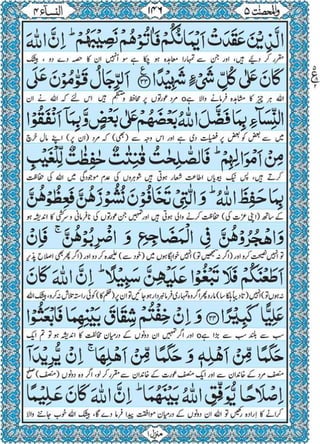 النسآء ٤ ١٣٦ والمحصنت ٥
الَّذِيْنَ عَقَدَتْ اَيْمَانُكُمْ فَاٰتُوْهُمْ نَصِيْبَهُمْ ؕ اِنَّ اللّٰهَ
مقرر کر دیے ہیں، اور جن سے تمہارا معاہدہ ہو چکا ہے سو انہیں ان کا حصہ دے دو ، بیشک
كَانَ عَلٰى كُلِّ شَيْءٍ شَهِيْدًا ﴿٣٣﴾ اَلرِّجَالُ قَوّٰمُوْنَ عَلَى
اللہ ہر چیز کا مشاہدہ فرمانے والا ہے o مرد عورتوں پر محافظ و منتظم ہیں اس لئے کہ اللہ نے ان
النِّسَآءِ بِمَا فَضَّلَ اللّٰهُ بَعْضَهُمْ عَلٰى بَعْضٍ وَّبِمَآ اَنْفَقُوْا
میں سے بعض کو بعض پر فضیلت دی ہے اور اس وجہ سے (بھی) کہ مرد (ان پر) اپنے مال خرچ
مِنْ اَمْوَالِهِمْ ؕ فَالصّٰلِحٰتُ قٰنِتٰتٌ حٰفِظٰتٌ لِّلْغَيْبِ
کرتے ہیں، پس نیک بیویاں اطاعت شعار ہوتی ہیں شوہروں کی عدم موجودگی میں اللہ کی حفاظت
بِمَا حَفِظَ اللّٰهُ ؕ وَالّٰتِيْ تَخَافُوْنَ نُشُوْزَهُنَّ فَعِظُوْهُنَّ
کے ساتھ (اپنی عزت کی) حفاظت کرنے والی ہوتی ہیں اور تمہیں جن عورتوں کی نافرمانی و سرکشی کا اندیشہ ہو
وَاهْجُرُوْهُنَّ فِي الْمَضَاجِعِ وَاضْرِبُوْهُنَّ ۚ فَاِنْ
تو انہیں نصیحت کرو اور (اگر نہ سمجھیں تو) انہیں خوابگاہوں میں (خود سے) علیحدہ کر دو اور (اگر پھر بھی اصلاح پذیر
اَطَعْنَكُمْ فَلَا تَبْغُوْا عَلَيْهِنَّ سَبِيْلًا ؕ اِنَّ اللّٰهَ كَانَ
عَلِيًّا كَبِيْرًا ﴿٣٤﴾ وَاِنْ خِفْتُمْ شِقَاقَ بَيْنِهِمَا فَابْعَثُوْا
سب سے بلند سب سے بڑا ہے o اور اگر تمہیں ان دونوں کے درمیان مخالفت کا اندیشہ ہو تو تم ایک
حَكَمًا مِّنْ اَهْلِهٖ وَحَكَمًا مِّنْ اَهْلِهَا ۚ اِنْ يُّرِيْدَآ
منصف مرد کے خاندان سے اور ایک منصف عورت کے خاندان سے مقرر کر لو، اگر وہ دونوں (منصف) صلح
اِصْلَاحًا يُّوَفِّقِ اللّٰهُ بَيْنَهُمَا ؕ اِنَّ اللّٰهَ كَانَ عَلِيْمًا
کرانے کا ارادہ رکھیں تو اللہ ان دونوں کے درمیان موافقت پیدا فرما دے گا، بیشک اللہ خوب جاننے والا
منزل ١